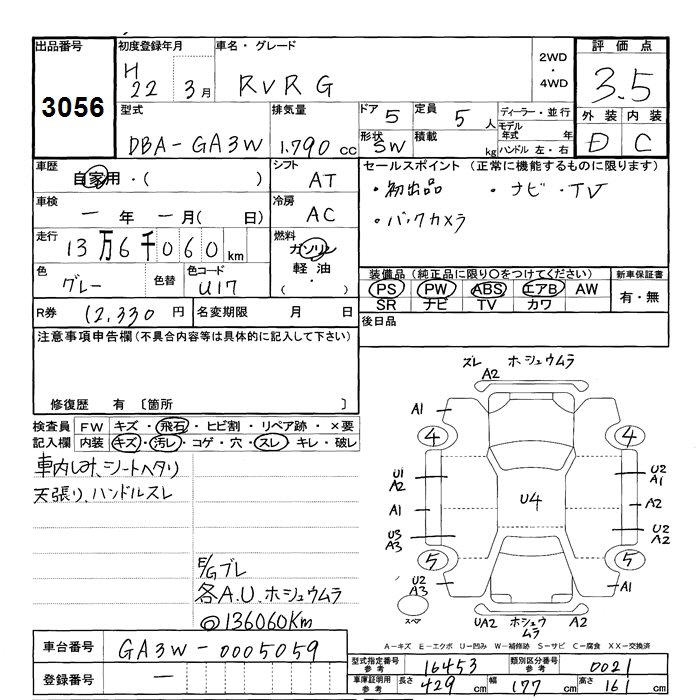 出品番号 初度登録年月 車名・グレード 2WD ・ 4WD 評価点
3056 H22 3月 RVR G 3.5
型式 排気量 ドア 5 定員 5人 ディーラー・並行 外装 内装
DBA-GA3W 1.790cc 形状 SW 積載 kg モデル年式 年 ハンドル 左・右 D C
車歴 自家用・( ) シフト AT セールスポイント (正常に機能するものに限ります)
車検 ー年ー月( 日) 冷房 AC ・初出品 ・ナビ・TV
・バックカメラ
走行 13万6千060km 燃料 ガソリン 軽油 ・ ( )
色 グレー 色替 色コード U17 装備品(純正品に限り○をつけてください) 新車保証書
PS PW ABS エアB AW 有・無
SR ナビ TV カワ
R券 12,330円 名変期限 月 日 後日品
注意事項申告欄(不具合内容等は具体的に記入して下さい)
修復歴 有 〔箇所 〕
検査員記入欄 FW キズ・飛石・ヒビ割・リペア跡・×要
内装 キズ・汚レ・コゲ・穴・スレ・キレ・破レ
車内しみ、シートヘタリ
天張り、ハンドルスレ
E/Gブレ
各A.U、ホシュウムラ
@136060Km
ズレ ホシュウムラ
A2
A1
4 4
U1 A2 U2 A1
U4
A1 A2
U3 A3 U2 A2
5 5
U2 A3 A1
スペア UA2 ホシュウムラ A2
A-キズ E-エクボ U-凹み W-補修跡 S-サビ C-腐食 XX-交換済
車台番号 GA3W-0005059
型式指定番号 参考 16453 類別区分番号 参考 0021
登録番号 ー 車庫証明用 参考 長さ 429cm 幅 177cm 高さ 161cm